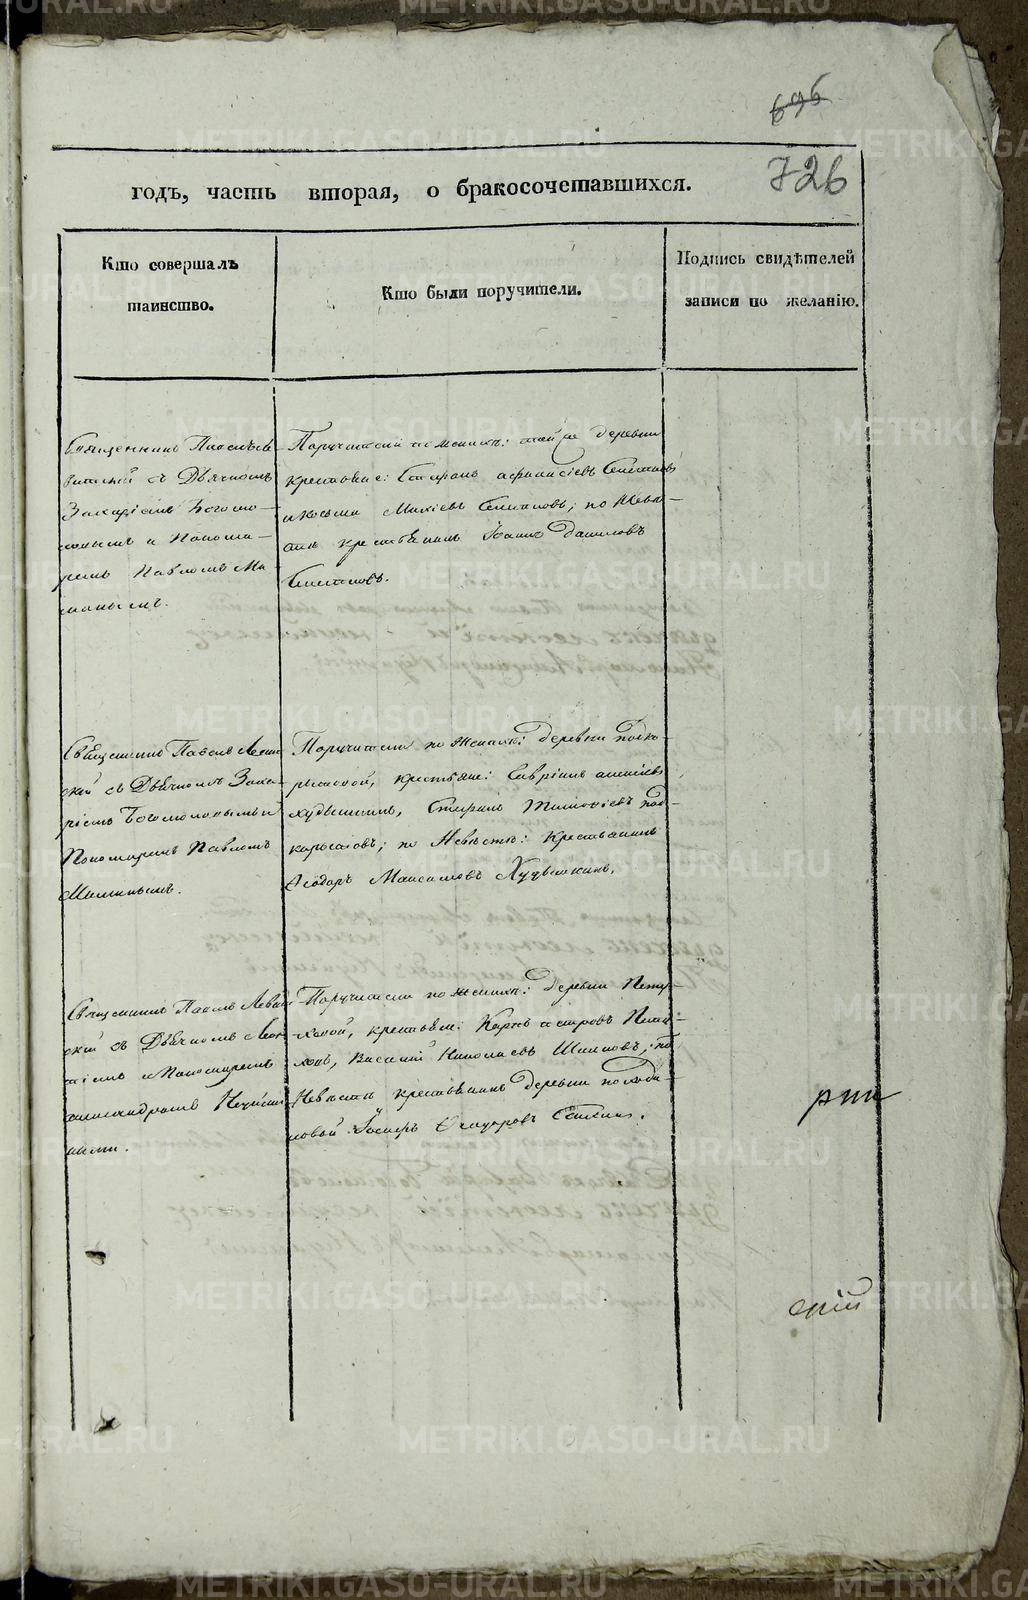 696
726
годъ, часть вторая, о бракосочетавшихся.
Кто совершалъ
таинство.
Кто были поручители.
Подпись свидѣтелей
записи по желанію.
Священникъ Павелъ Ле
витскій съ Дьячкомъ
Захаріемъ Богомо-
ловымъ и Понома-
ремъ Павломъ Ми
Поручители по женихѣ: той же деревни
крестьяне: Стефанъ Афанасіевъ
по Невѣ-
стѣ крестьянинъ Іоаннъ Даниловъ
Священникъ Павелъ Левит
скій съ Дьячкомъ Заха-
ріемъ Богомоловымъ и
Пономаремъ Павломъ
Поручители по женихѣ: деревни Подко-
рытовой, крестьяне: Гавріилъ Алексіевъ
Худышкинъ, Стефанъ Тимофіевъ Под-
корытовъ; по Невѣстѣ: крестьянинъ
Ѳеодоръ Максимовъ Худышкинъ.
Священникъ Павелъ Левит
скій съ Дьячкомъ Леон
тіемъ и Пономаремъ
Александромъ
ными.
Поручители по женихѣ: деревни Пету-
ховой, крестьяне: Карпъ Петровъ Пету-
ховъ, Василій Николаевъ Шиповъ; по
Невѣстѣ крестьянинъ деревни
новой Іосифъ Ѳеодоровъ
рпи
METRIKI.GASO-URAL.RU